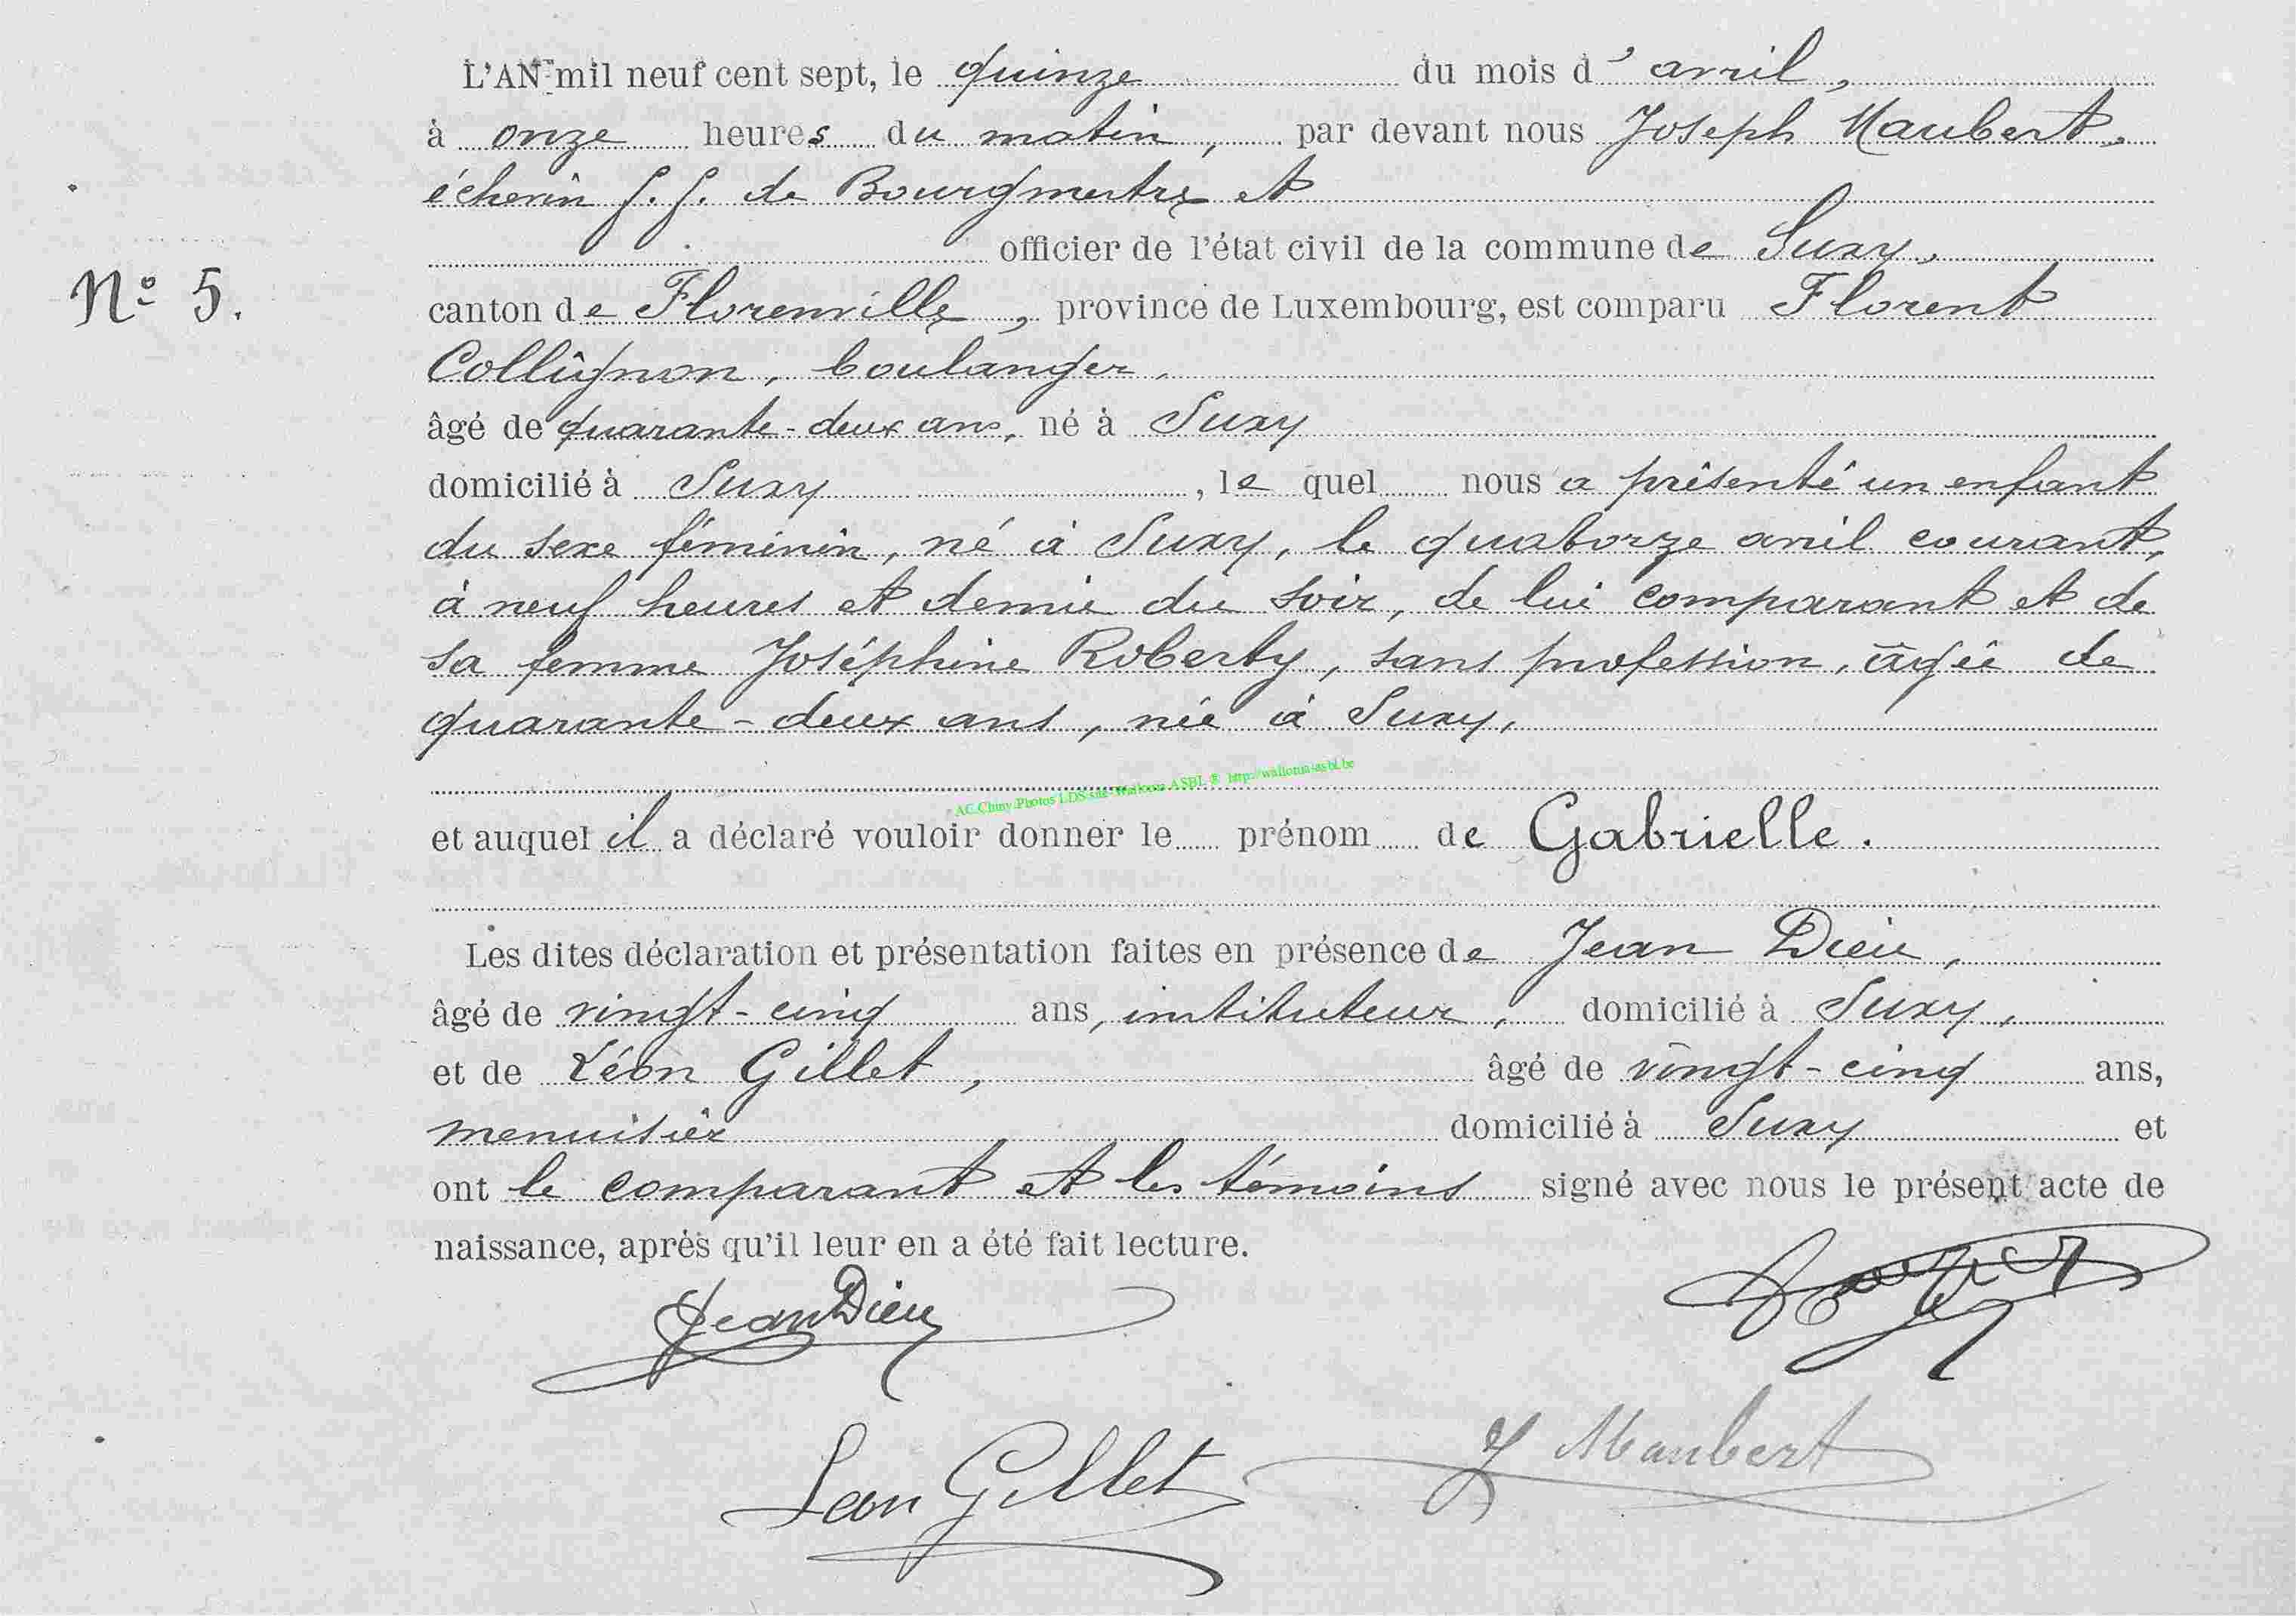 L'AN mil neuf cent sept, le quinze du mois d'avril,
à onze heures du matin, par devant nous Joseph Maubert,
échevin f.f. de Bourgmestre et
officier de l'état civil de la commune de Suxy,
N° 5.
canton de Florenville, province de Luxembourg, est comparu Florent
Collignon, boulanger,
âgé de quarante-deux ans, né à Suxy
domicilié à Suxy, le quel nous a présenté un enfant
du sexe féminin, né à Suxy, le quatorze avril courant,
à neuf heures et demie du soir, de lui comparant et de
sa femme Joséphine Roberty, sans profession, âgée de
quarante-deux ans, née à Suxy,
AC Chiny Photos LDS site Wallonia ASBL ® http://wallonia-asbl.be
et auquel il a déclaré vouloir donner le prénom de Gabrielle.
Les dites déclaration et présentation faites en présence de Jean Dieu,
âgé de vingt-cinq ans, instituteur, domicilié à Suxy,
et de Léon Gillet, âgé de vingt-cinq ans,
menuisier domicilié à Suxy et
ont le comparant et les témoins signé avec nous le présent acte de
naissance, après qu'il leur en a été fait lecture.
Jean Dieu
Leon Gillet
J Maubert